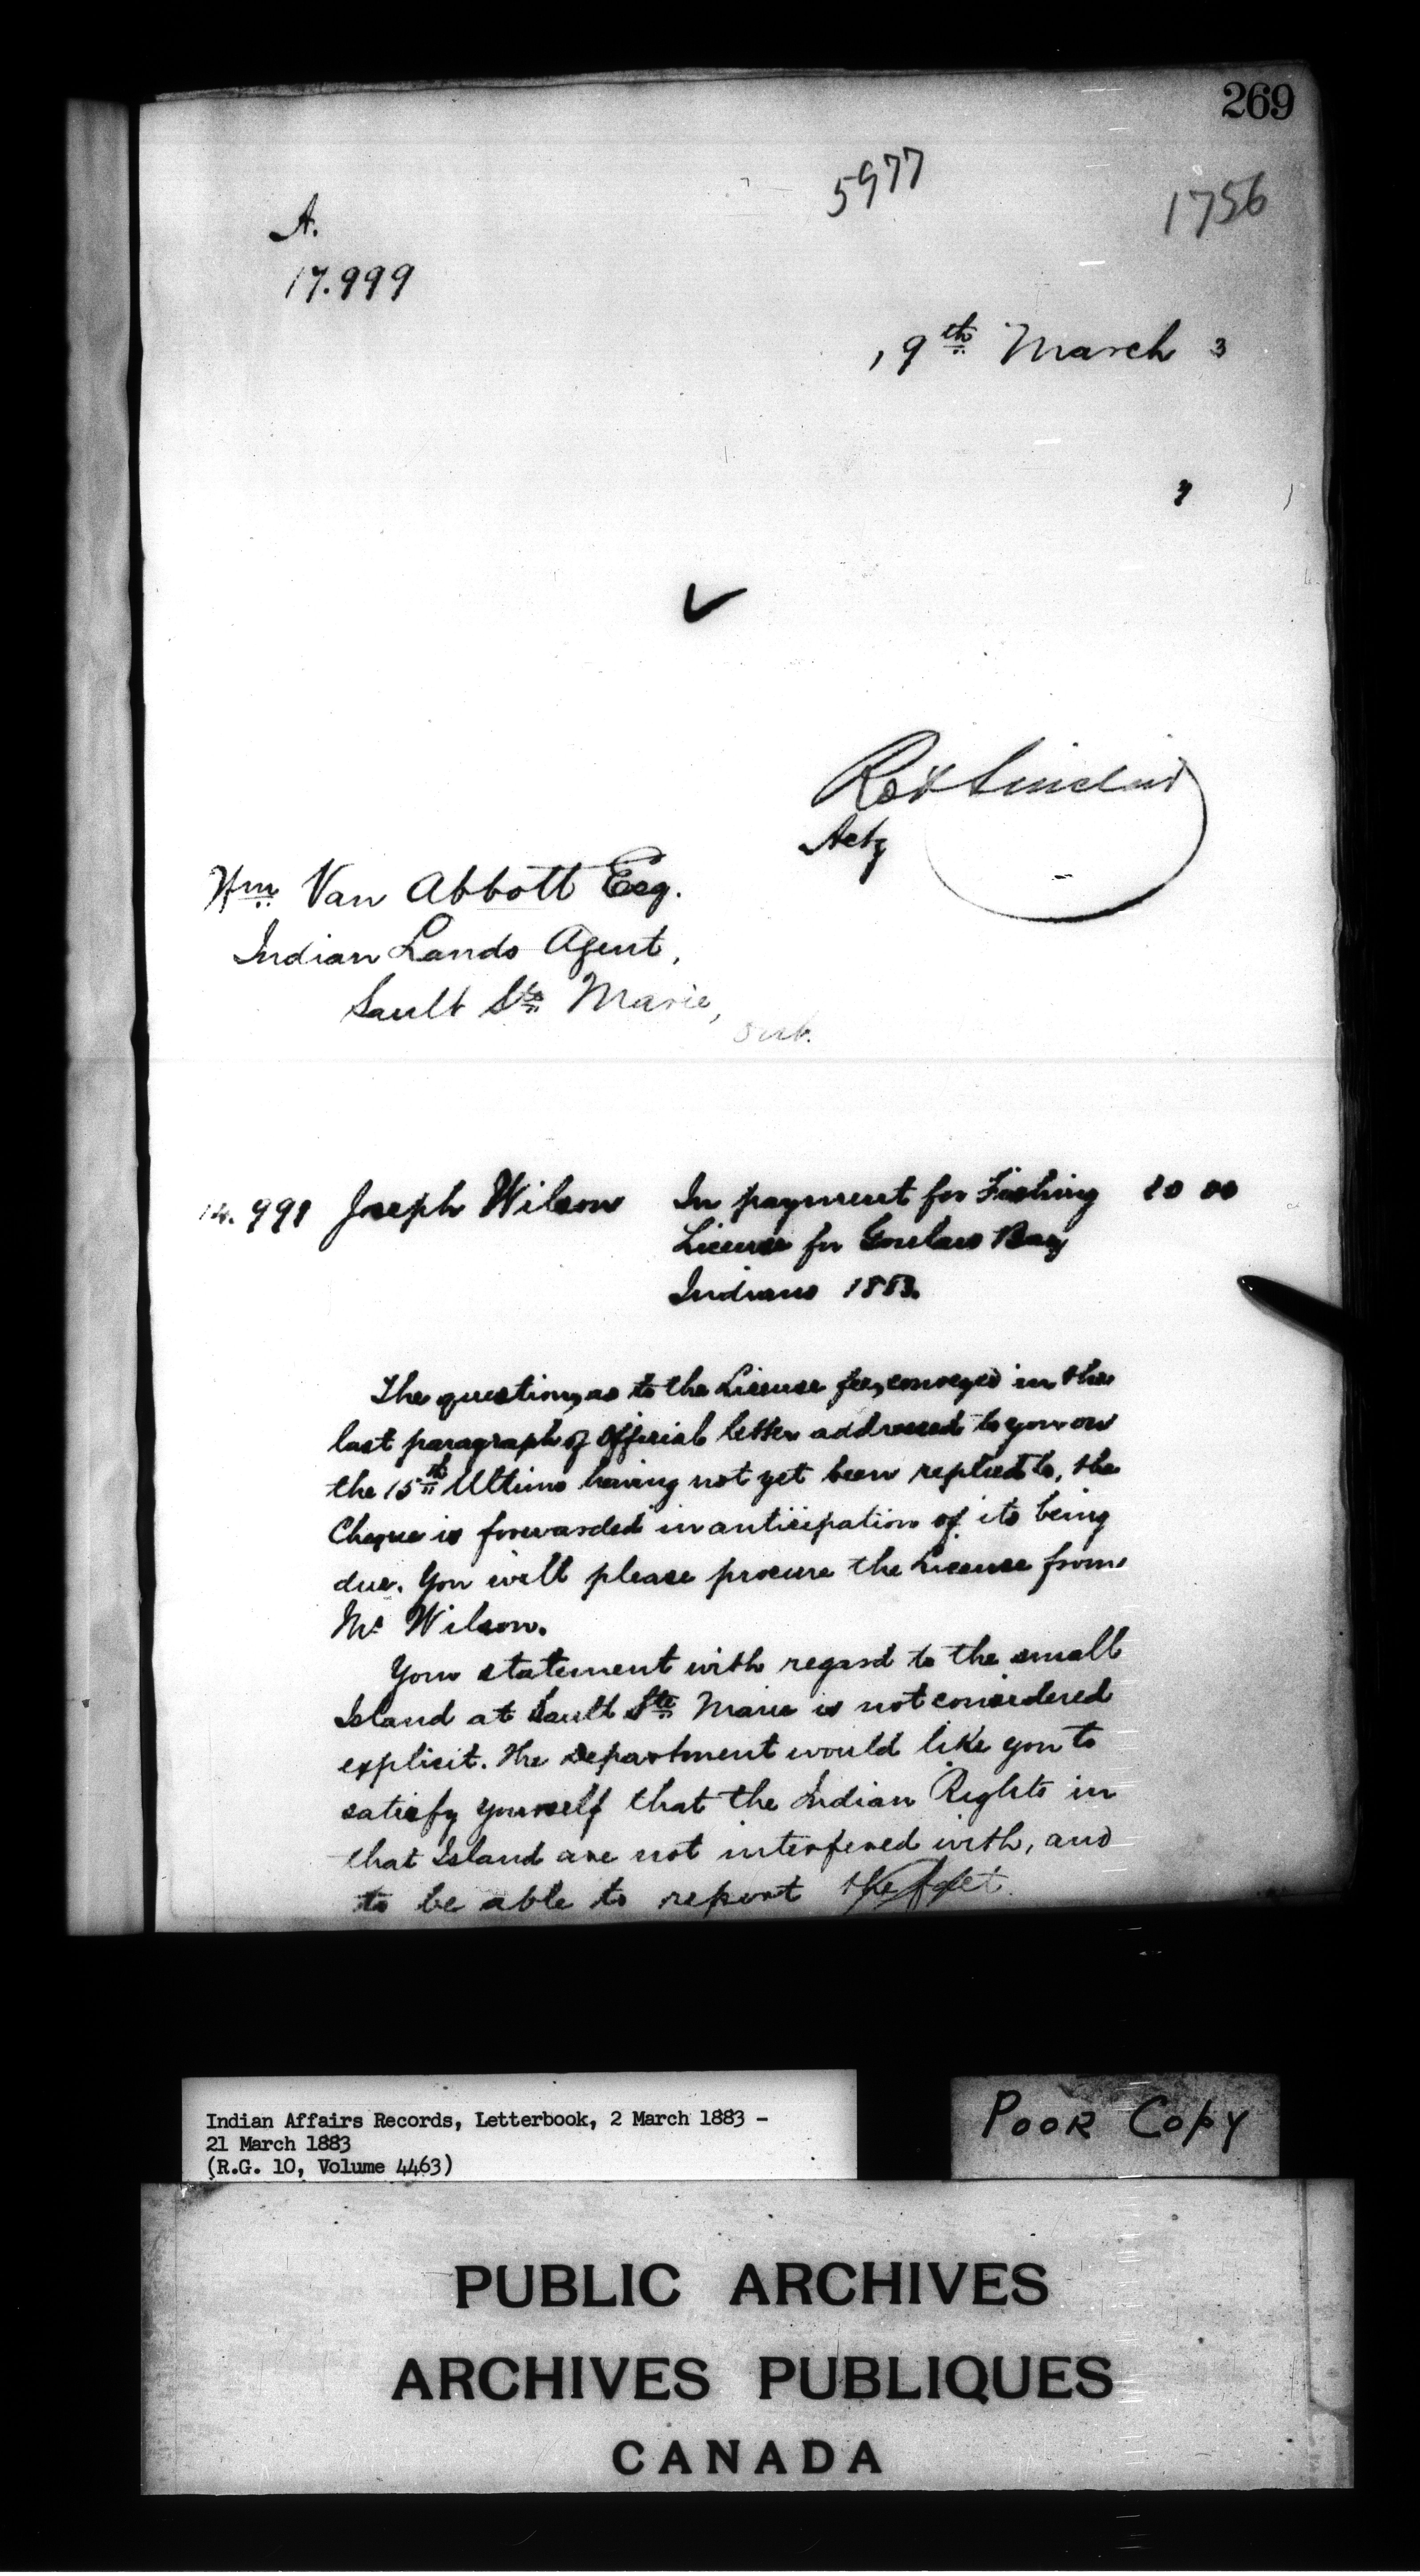 269
5977
1756
A.
17.999
19th March 3
Robt Sinclair
Actg
Wm Van Abbott Esq.
Indian Lands Agent,
Sault Ste Marie,
Ont.
14.991 Joseph Wilson In payment for Fishing 20 00
License for Goulais Bay
Indians 1883.
The question, as to the License fee, conveyed in the
last paragraph of Official letter addressed to you on
the 15th Ultimo having not yet been replied to, the
Cheque is forwarded in anticipation of its being
due. You will please procure the License from
Mr Wilson.
Your statement with regard to the small
Island at Sault Ste Marie is not considered
explicit. The Department would like you to
satisfy yourself that the Indian Rights in
that Island are not interfered with, and
to be able to report
Indian Affairs Records, Letterbook, 2 March 1883 -
21 March 1883
(R.G. 10, Volume 4463)
POOR COPY
PUBLIC ARCHIVES
ARCHIVES PUBLIQUES
CANADA